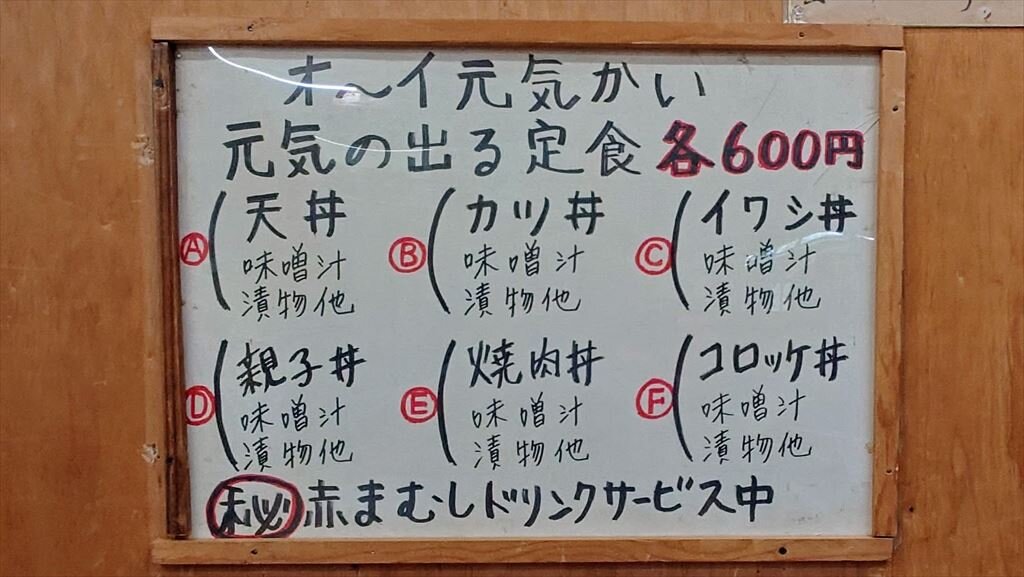 オ〜イ元気かい
元気の出る定食 各600円
Ⓐ 天丼
味噌汁
漬物他
Ⓑ カツ丼
味噌汁
漬物他
Ⓒ イワシ丼
味噌汁
漬物他
Ⓓ 親子丼
味噌汁
漬物他
Ⓔ 焼肉丼
味噌汁
漬物他
Ⓕ コロッケ丼
味噌汁
漬物他
㊙赤まむしドリンクサービス中